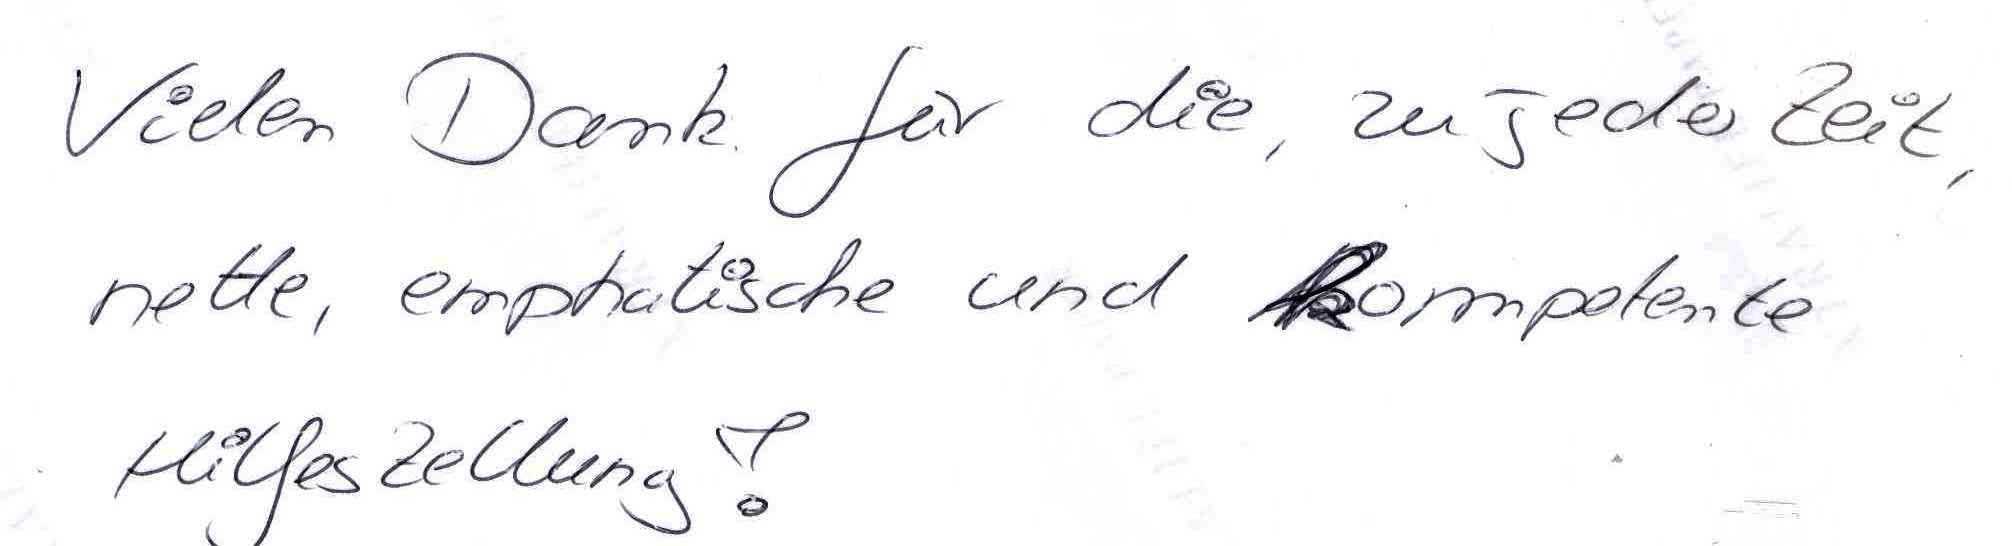 Vielen Dank für die, zu jeder Zeit,
nette, emphatische und kompetente
Hilfestellung!